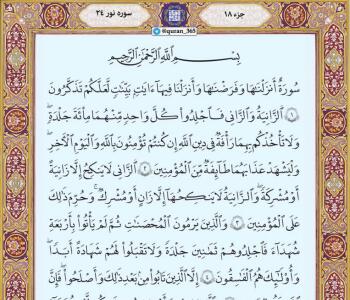 جزء ۱۸
@quran_365
سوره نور ۲۴
بِسْمِ ٱللَّهِ ٱلرَّحْمَٰنِ ٱلرَّحِيمِ
سُورَةٌ أَنزَلْنَٰهَا وَفَرَضْنَٰهَا وَأَنزَلْنَا فِيهَآ ءَايَٰتٍۭ بَيِّنَٰتٍ لَّعَلَّكُمْ تَذَكَّرُونَ
١ ٱلزَّانِيَةُ وَٱلزَّانِى فَٱجْلِدُوا۟ كُلَّ وَٰحِدٍ مِّنْهُمَا مِا۟ئَةَ جَلْدَةٍ ۖ
وَلَا تَأْخُذْكُم بِهِمَا رَأْفَةٌ فِى دِينِ ٱللَّهِ إِن كُنتُمْ تُؤْمِنُونَ بِٱللَّهِ وَٱلْيَوْمِ ٱلْءَاخِرِ ۖ
وَلْيَشْهَدْ عَذَابَهُمَا طَآئِفَةٌ مِّنَ ٱلْمُؤْمِنِينَ ٢ ٱلزَّانِى لَا يَنكِحُ إِلَّا زَانِيَةً
أَوْ مُشْرِكَةً وَٱلزَّانِيَةُ لَا يَنكِحُهَآ إِلَّا زَانٍ أَوْ مُشْرِكٌ ۚ وَحُرِّمَ ذَٰلِكَ
عَلَى ٱلْمُؤْمِنِينَ ٣ وَٱلَّذِينَ يَرْمُونَ ٱلْمُحْصَنَٰتِ ثُمَّ لَمْ يَأْتُوا۟ بِأَرْبَعَةِ
شُهَدَآءَ فَٱجْلِدُوهُمْ ثَمَٰنِينَ جَلْدَةً وَلَا تَقْبَلُوا۟ لَهُمْ شَهَٰدَةً أَبَدًا ۚ
وَأُو۟لَٰٓئِكَ هُمُ ٱلْفَٰسِقُونَ ٤ إِلَّا ٱلَّذِينَ تَابُوا۟ مِنۢ بَعْدِ ذَٰلِكَ وَأَصْلَحُوا۟ فَإِنَّ